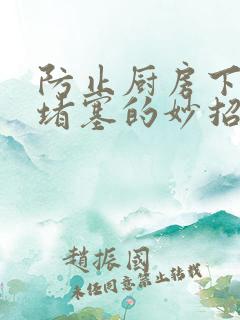 防止厨房下
堵塞的妙招
趙振國
未经同意禁止转载